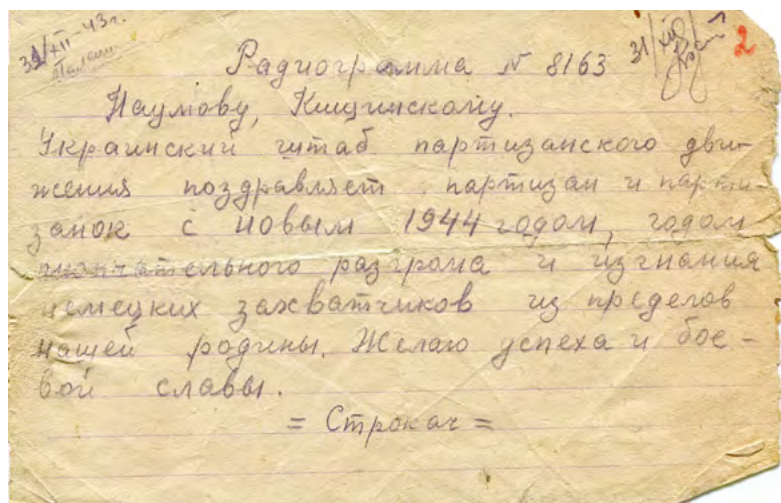 31/XII-43г.
31/XII
2
Радиограмма № 8163
Наумову, Кищинскому.
Украинский штаб партизанского дви-
жения поздравляет партизан и парти-
занок с новым 1944 годом, годом
окончательного разгрома и изгнания
немецких захватчиков из пределов
нашей родины. Желаю успеха и бое-
вой славы.
= Строкач =